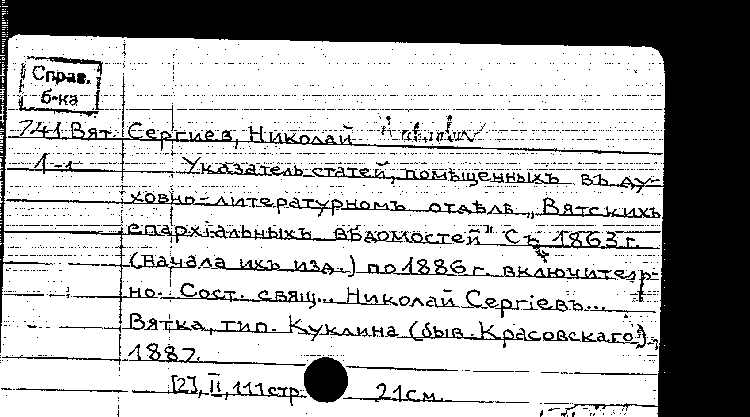 Справ.
б-ка
741.Вят. Сергиев, Николай
1-1 Указатель статей, помѣщенныхъ въ ду-
ховно-литературномъ отдѣлѣ „Вятскихъ
епархіальныхъ вѣдомостей" Съ 1863 г.
(начала ихъ изд.) по 1886 г. включитель-
но. Сост. свящ... Николай Сергіевъ...
Вятка, тип. Куклина (быв. Красовскаго),
1887.
[2], II, 111 стр. 21 см.